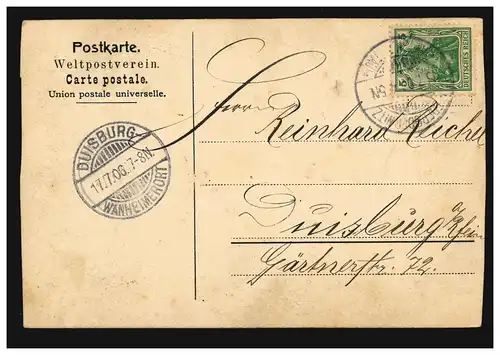 Postkarte.
Weltpostverein.
Carte postale.
Union postale universelle.
DEUTSCHES REICH
DUISBURG
17.7.06.7-8N.
WANHEIMERORT
Herrn
Reinhard
Duisburg a/Rhein
Gärtnerstr. 72.